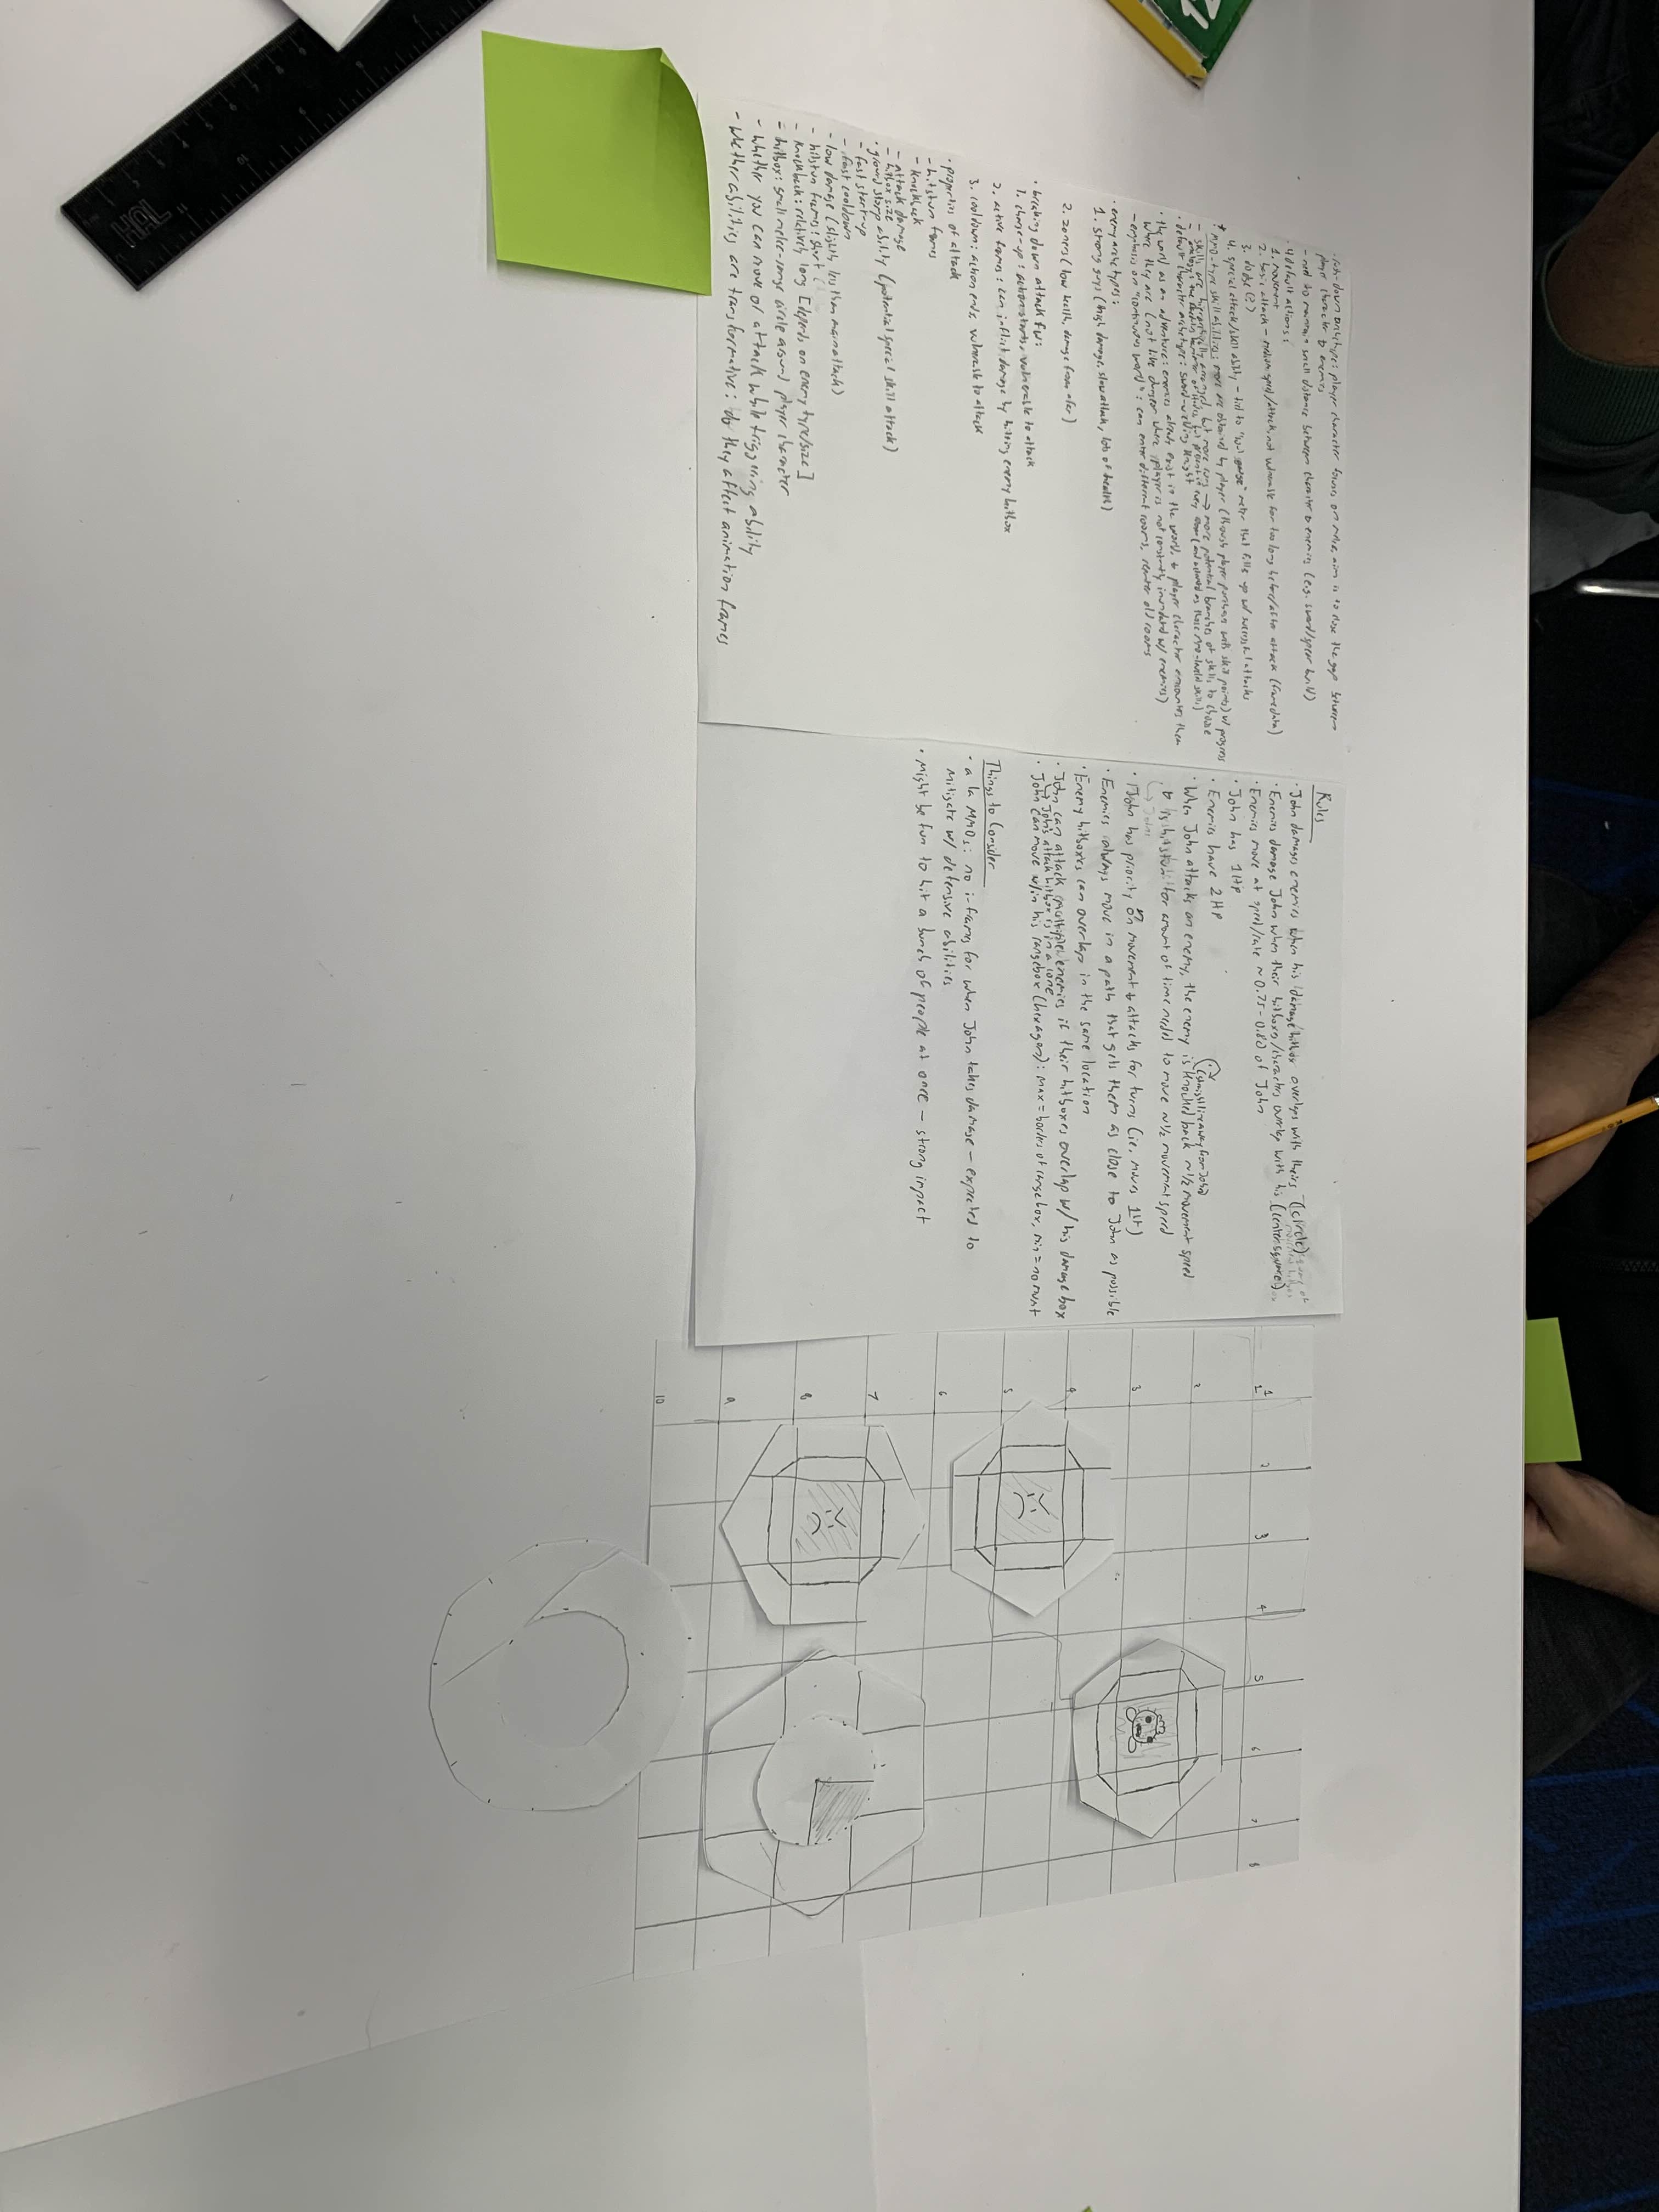 rush-down archetype: player character focuses on melee, aim is to close the gap between
player character & enemies
- need to maintain small distance between character & enemies (e.g. sword/spear build)
· 4 default actions:
1. movement
2. basic attack - medium speed/attack, not vulnerable for too long before/after attack (frame data)
3. dodge (?)
4. special attack/skill ability - tied to "soul gauge" meter that fills up w/ successful attacks
* MMO-type skill abilities: more are obtained by player (though player purchases with skill points) w/ progress
- skills are hierarchically arranged, but more runs → more potential branches of skills to choose
· default character archetype: sword-wielding knight
· the world as an adventure: enemies already exist in the world, & player character encounters them
where they are (not like dungeon where player is not constantly inundated w/ enemies)
- emphasis on "continuous world": can enter different rooms, reenter old rooms
· enemy archetypes:
1. strong guys (high damage, slow attack, lots of health)
2. zoners (low health, damage from afar)
· breaking down attack fw:
1. charge-up: action starts, vulnerable to attack
2. active frames: can inflict damage by hitting enemy hitbox
3. cooldown: action ends, vulnerable to attack
· properties of attack
- hitstun frames
- knockback
- attack damage
- hitbox size
· ground stomp ability (potential special skill attack)
- fast start-up
- fast cooldown
- low damage (slightly less than main attack)
- hitstun frames: short
- knockback: relatively long [depends on enemy type/size]
- hitbox: small melee-range circle around player character
- whether you can move or attack while triggering ability
- whether abilities are transformative: do they affect animation frames
Rules
· John damages enemies when his damage hitbox overlaps with theirs (circle)
· Enemies damage John when their hitboxes/characters overlap with his (center square)
· Enemies move at speed/rate ~0.75-0.80 of John
· John has 1HP
· Enemies have 2HP
(straight line away from John)
· When John attacks an enemy, the enemy is knocked back ~1/2 movement speed
↳ is hitstun for amount of time needed to move ~1/2 movement speed
· John has priority on movement & attacks for turns (i.e. moves 1st)
· Enemies always move in a path that gets them as close to John as possible
· Enemy hitboxes can overlap in the same location
· John can attack multiple enemies if their hitboxes overlap w/ his damage box
↳ John's attack hitbox is in a cone
· John can move w/in his rangebox (hexagon): max = borders of range box, min = no mvmt
Things to Consider
· a la MMOs: no i-frames for when John takes damage - expected to
mitigate w/ defensive abilities
· Might be fun to hit a bunch of people at once - strong impact
1 2 3 4 5 6 7 8
1
2
3
4
5
6
7
8
9
10